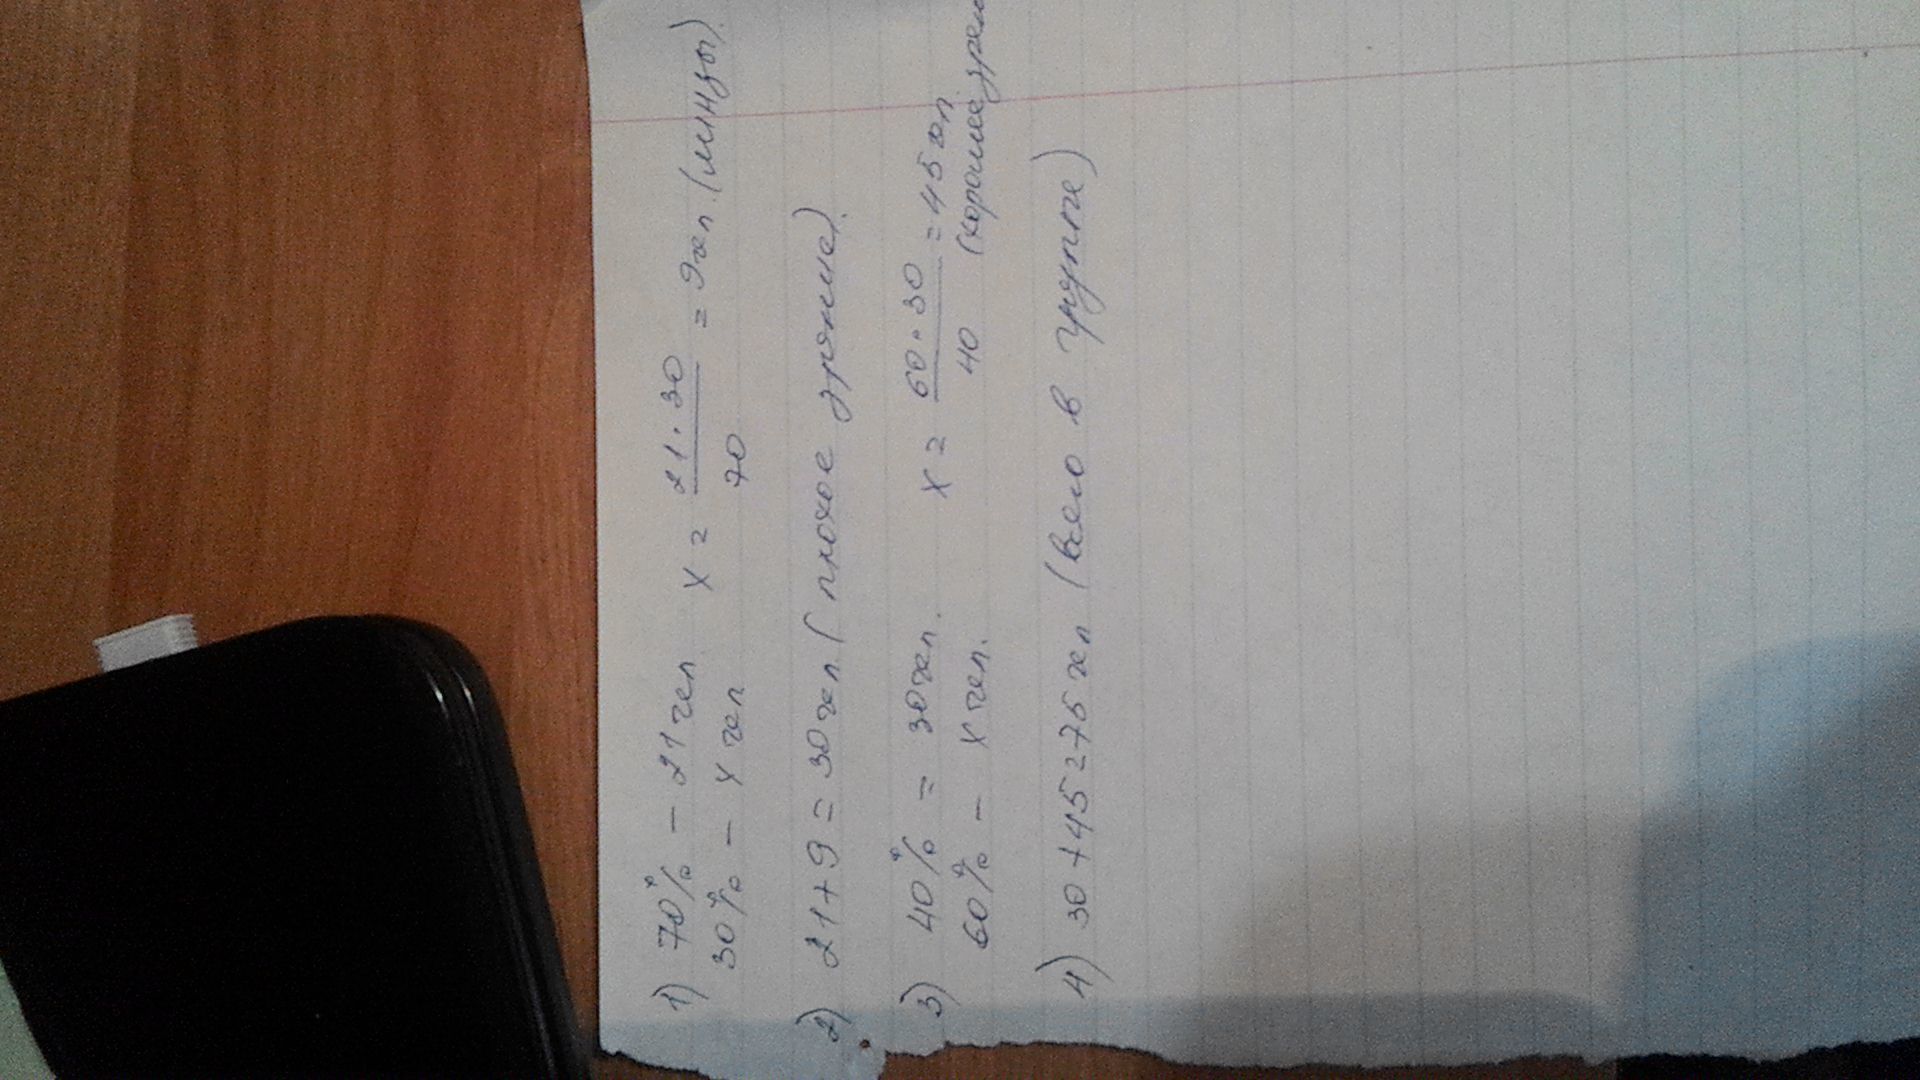 1) 70% - 21 чел x = 21·30
30% - x чел 70 = 9 чел. (линзы).
2) 21+9 = 30 чел. (плохое зрение).
3) 40% = 30 чел. x = 60·30 = 45 чел.
60% - x чел. 40 (хорошее зрен
4) 30+45=75 чел (всего в группе)